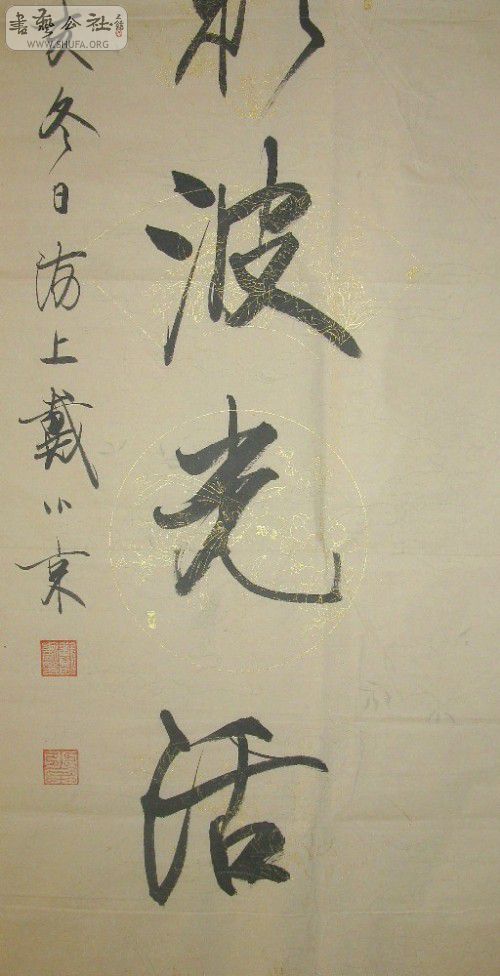 書藝公社
WWW.SHUFA.ORG
波光活
亥冬日海上戴小京